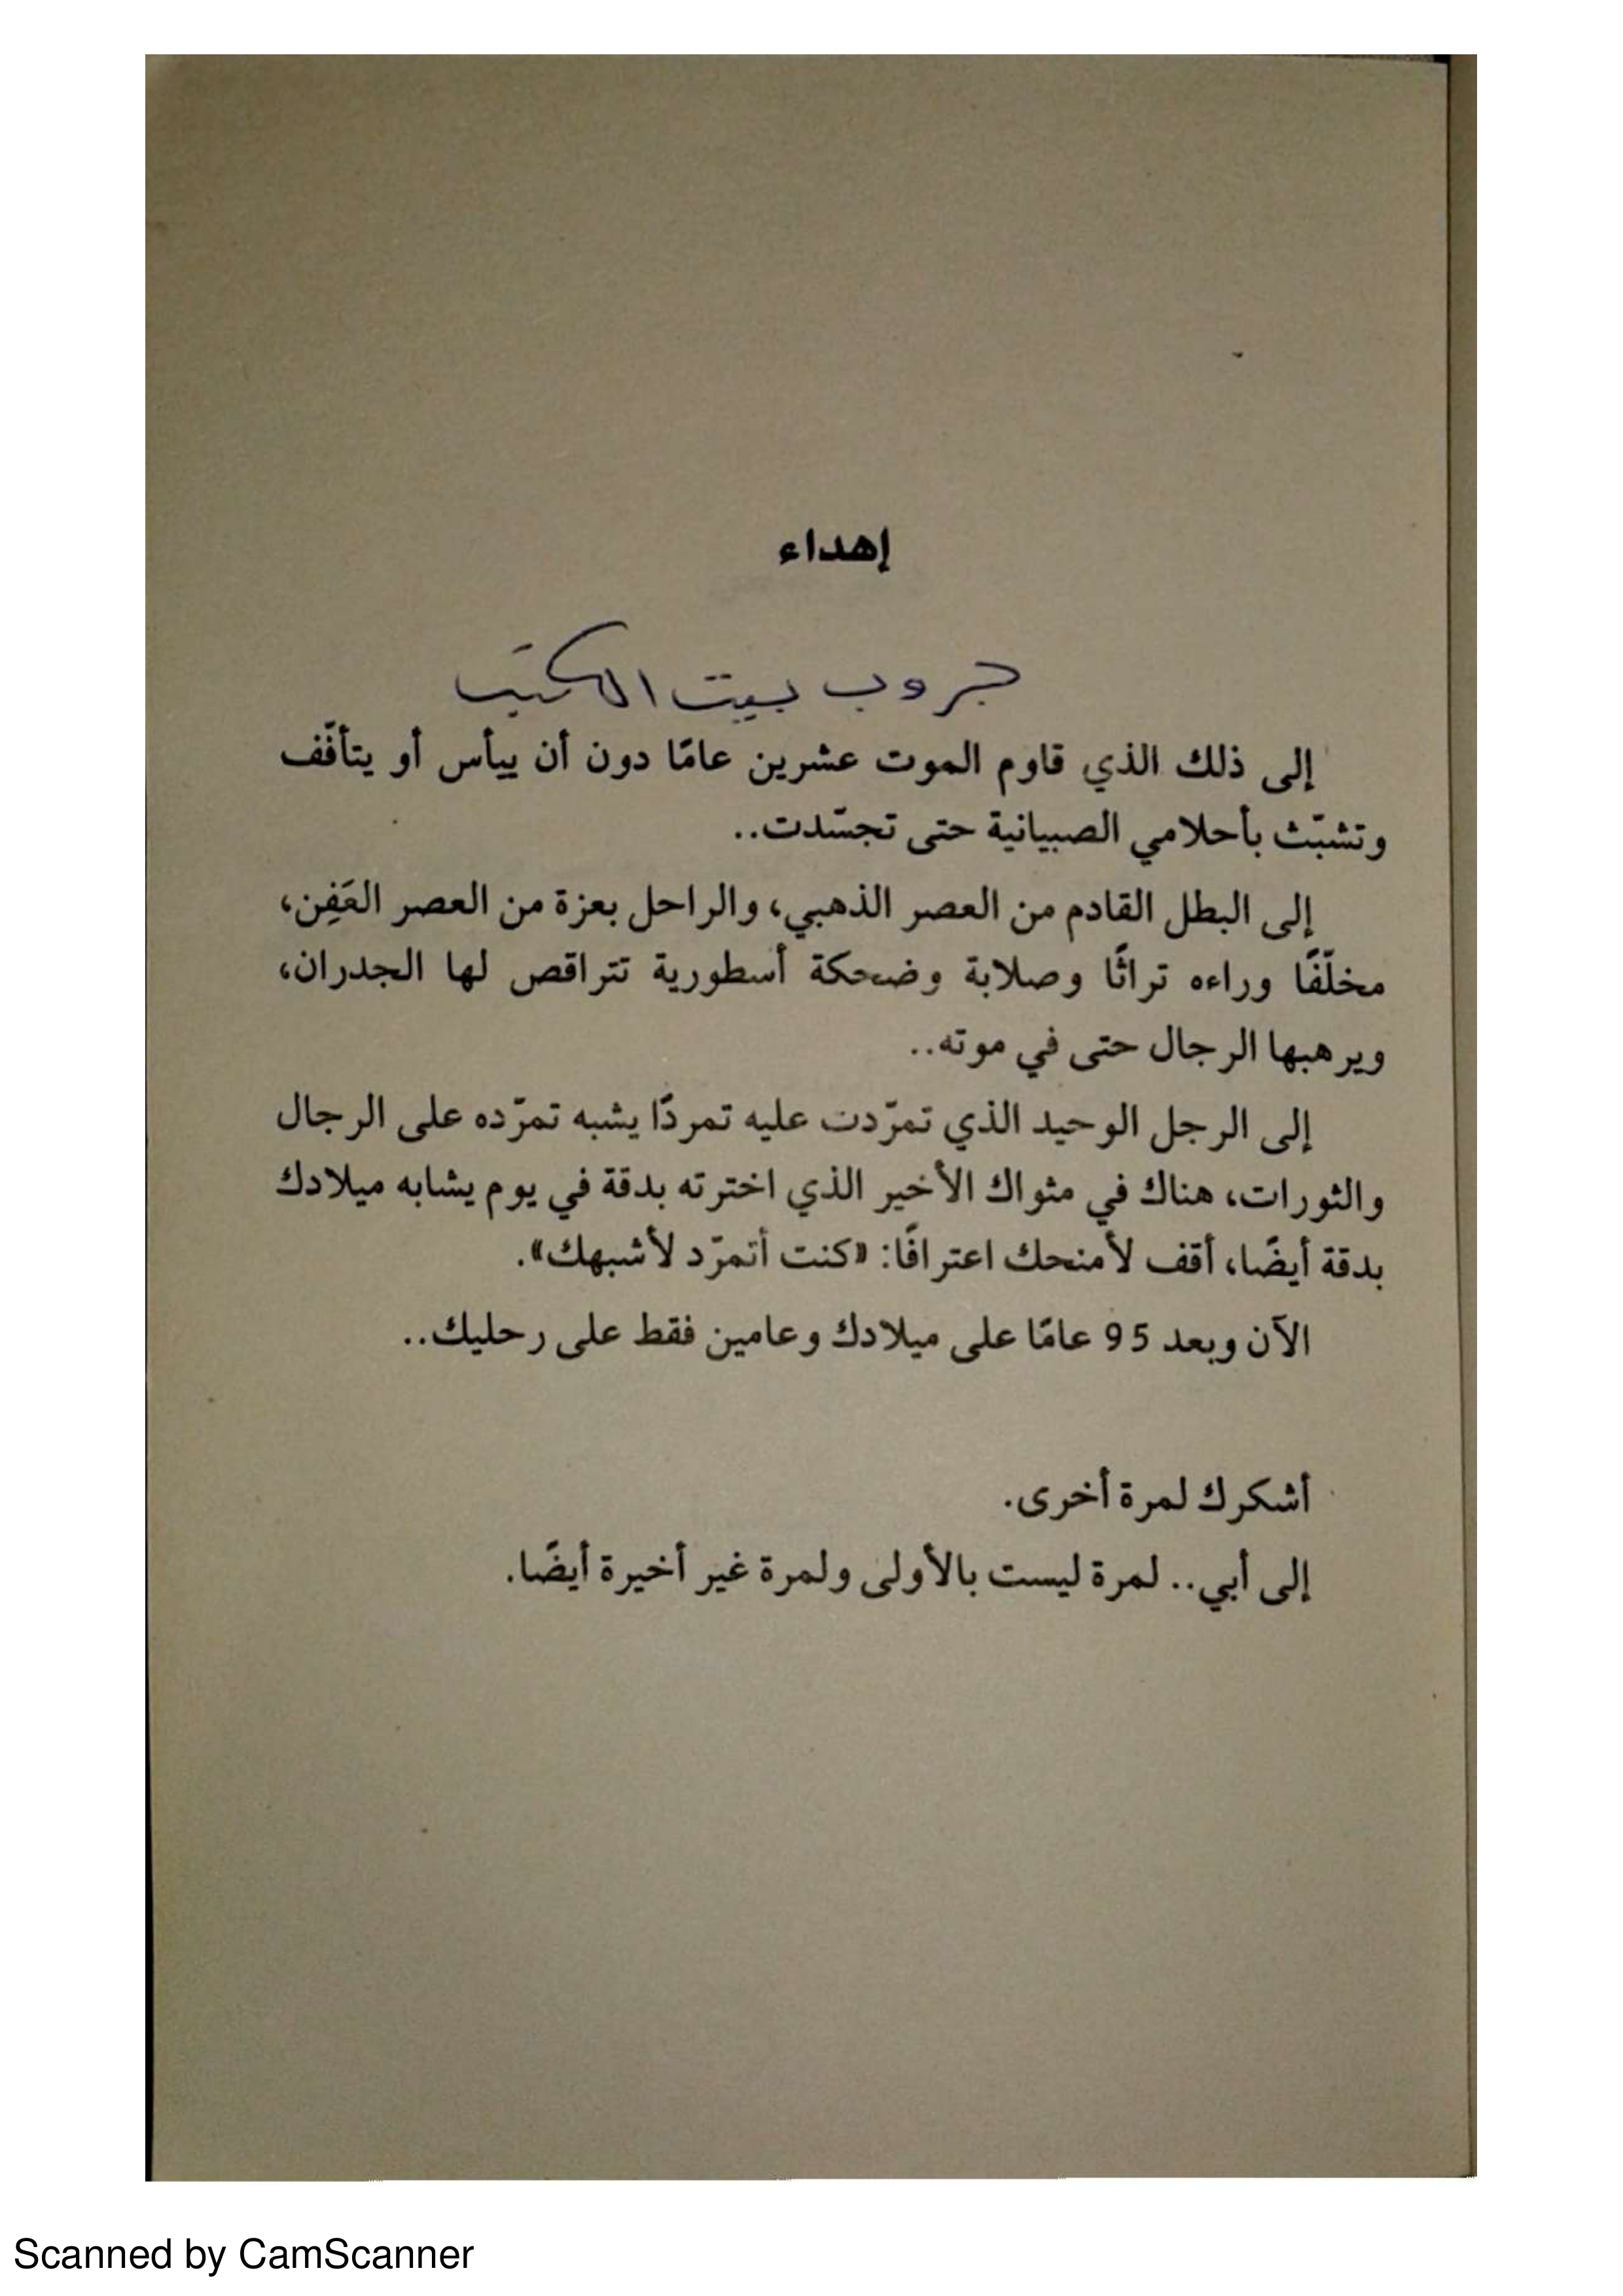 إهداء
جروب بيت الكتب
إلى ذلك الذي قاوم الموت عشرين عامًا دون أن ييأس أو يتأفّف
وتشبّث بأحلامي الصبيانية حتى تجسّدت..
إلى البطل القادم من العصر الذهبي، والراحل بعزة من العصر العَفِن،
مخلّفًا وراءه تراثًا وصلابة وضحكة أسطورية تتراقص لها الجدران،
ويرهبها الرجال حتى في موته..
إلى الرجل الوحيد الذي تمرّدت عليه تمردًا يشبه تمرّده على الرجال
والثورات، هناك في مثواك الأخير الذي اخترته بدقة في يوم يشابه ميلادك
بدقة أيضًا، أقف لأمنحك اعترافًا: «كنت أتمرّد لأشبهك».
الآن وبعد 95 عامًا على ميلادك وعامين فقط على رحليك..
أشكرك لمرة أخرى.
إلى أبي.. لمرة ليست بالأولى ولمرة غير أخيرة أيضًا.
Scanned by CamScanner